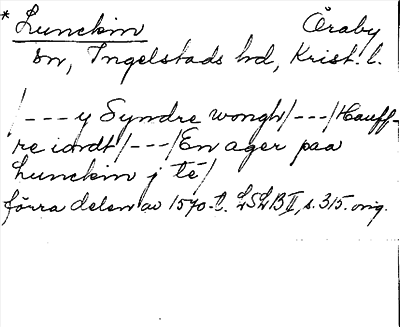 * Lunckin Öraby
sn, Ingelstads hd, Krist. l.
/---y Syndre wongh/---/Hauff-
re iordt/---/En ager paa
Lunckin j té/
förra delen av 1570-t. LSLB II, s. 315. orig.